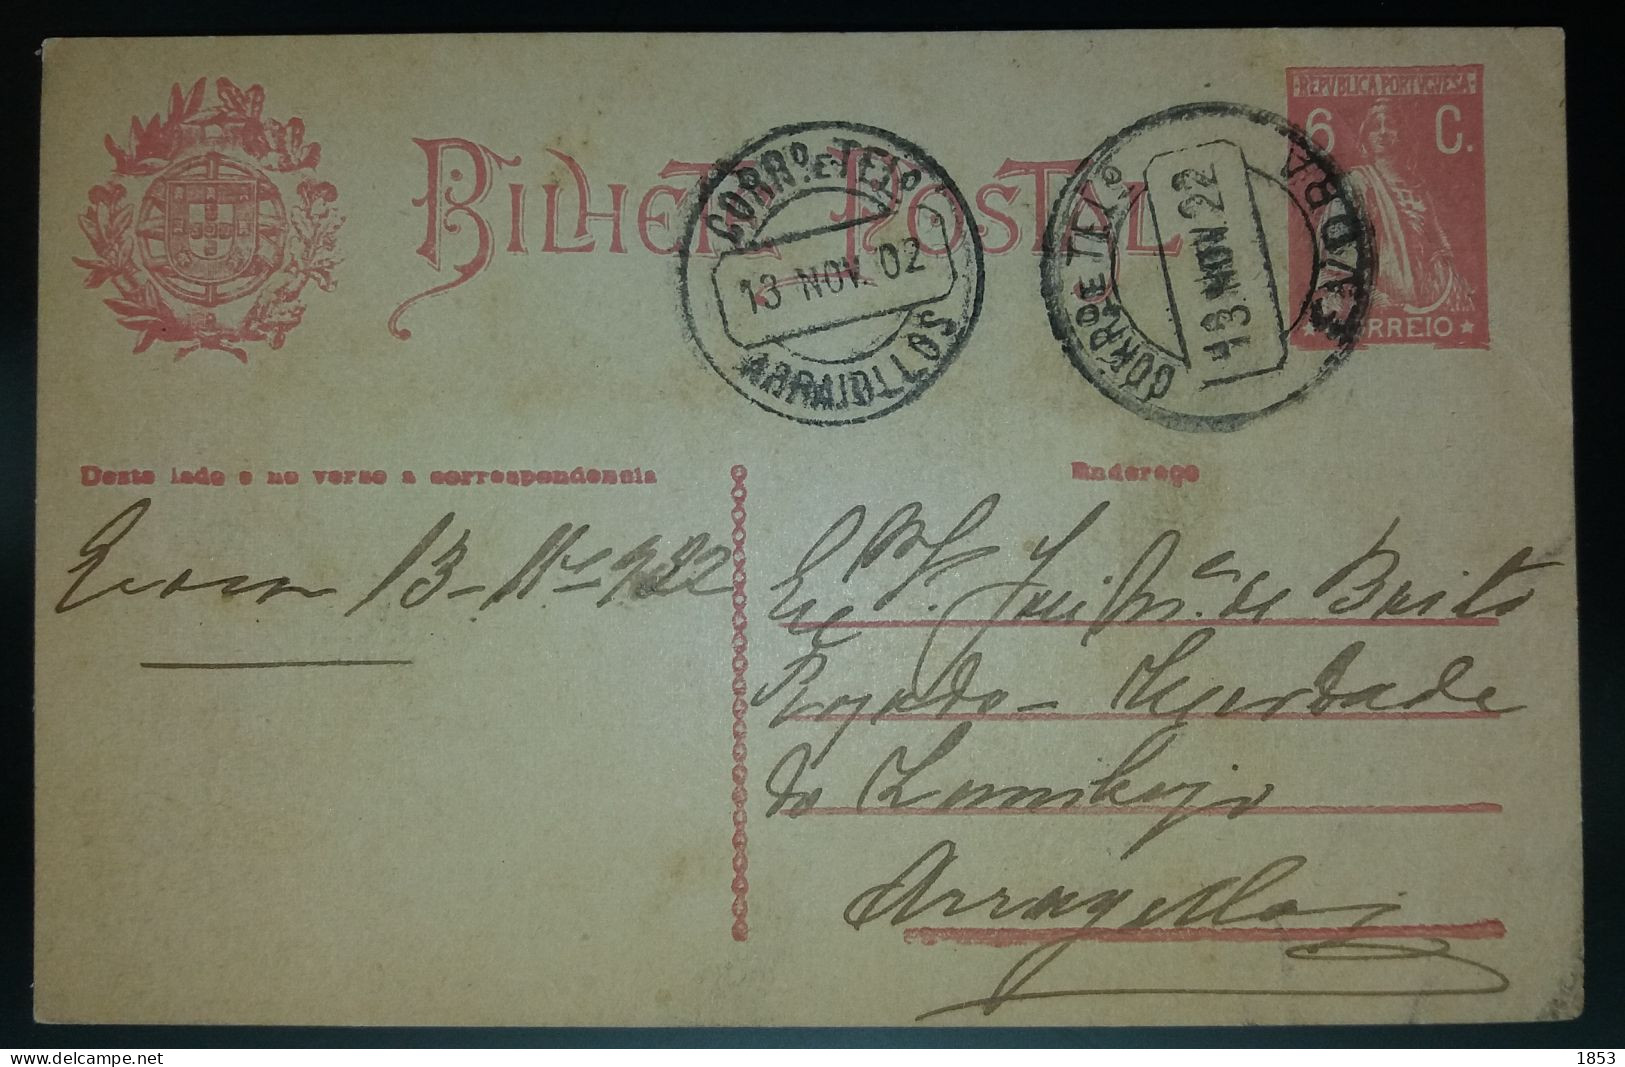 REPVBLICA PORTVGVESA
6 C.
CORREIO
BILHETE POSTAL
CORRO. E TELO.
13 NOV. 02
ARRAIOLLOS
CORRO. E TELO.
13 NOV 22
Deste lado e no verso a correspondencia
Endereço
13-11-922
Exc. Sr. José M.a de Brito
Rojado - Herdade
do
Arrayollos
delcampe.net
1853